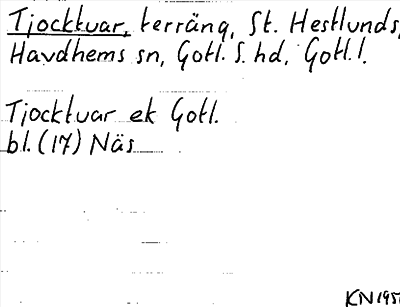 Tjocktuar, terräng, St. Hestlunds,
Havdhems sn, Gotl. S. hd, Gotl. l.
Tjocktuar ek Gotl.
bl. (17) Näs
KN 195